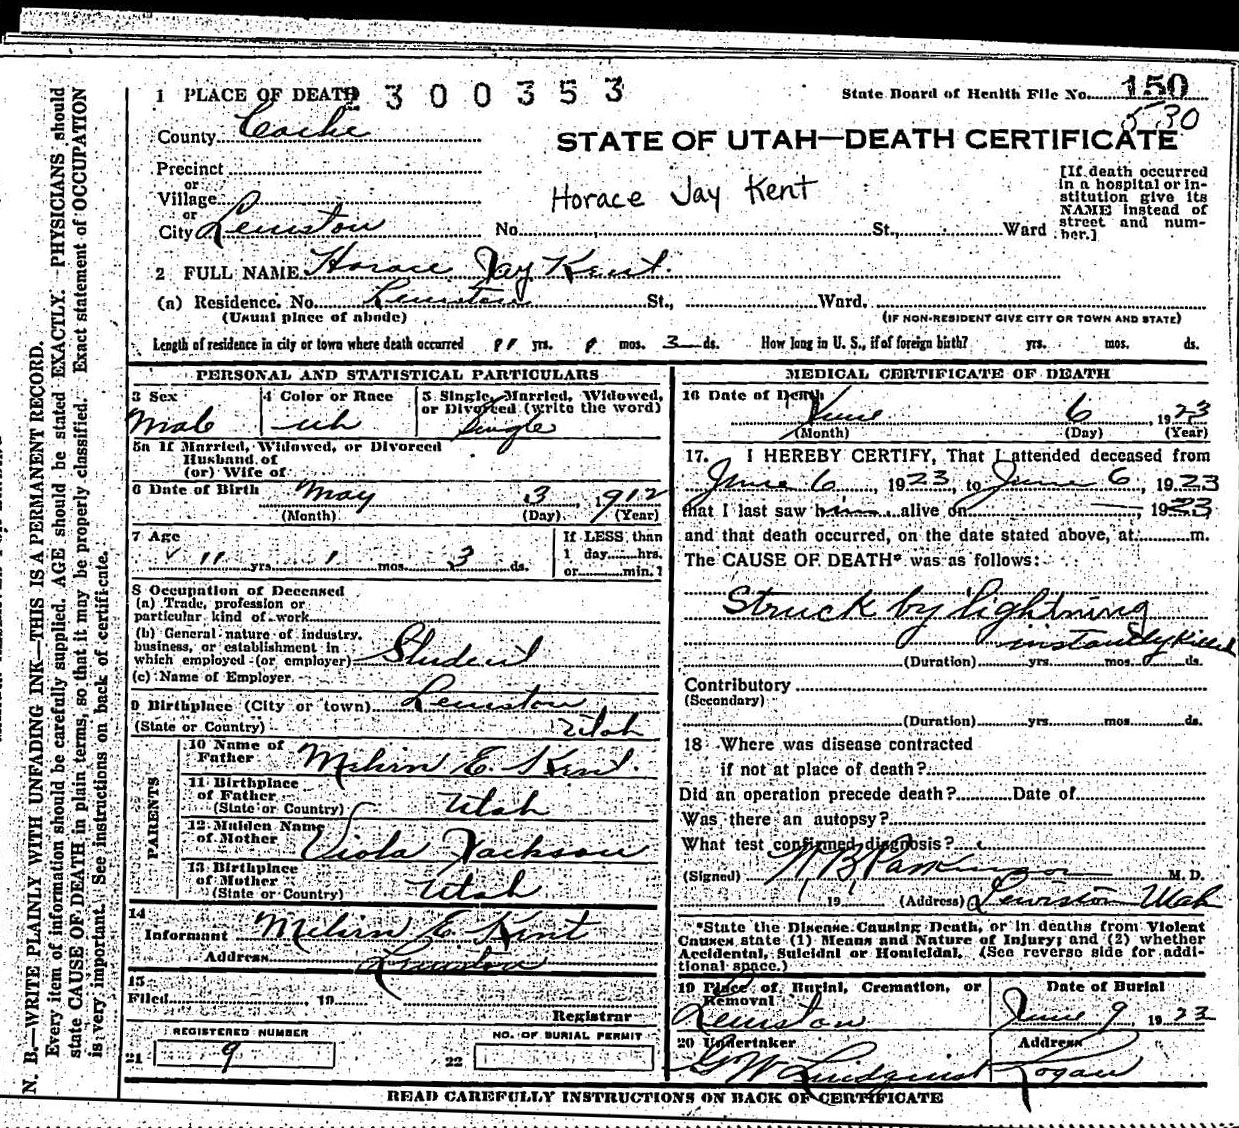 1 PLACE OF DEATH 2300353
State Board of Health File No. 150
530
County Cache
STATE OF UTAH—DEATH CERTIFICATE
Precinct
or
Village
Horace Jay Kent
[If death occurred in a hospital or institution give its NAME instead of street and number.]
or
City Lewiston No. St., Ward
2 FULL NAME Horace Jay Kent.
(a) Residence. No. Lewiston St., Ward.
(Usual place of abode) (IF NON-RESIDENT GIVE CITY OR TOWN AND STATE)
Length of residence in city or town where death occurred 11 yrs. 1 mos. 3 ds. How long in U. S., if of foreign birth? yrs. mos. ds.
PERSONAL AND STATISTICAL PARTICULARS
3 Sex 4 Color or Race 5 Single, Married, Widowed,
or Divorced (write the word)
Male wh Single
5a If Married, Widowed, or Divorced
Husband of
(or) Wife of
6 Date of Birth May 3, 1912
(Month) (Day) (Year)
7 Age If LESS than
11 yrs. 1 mos. 3 ds. 1 day hrs.
or min.?
8 Occupation of Deceased
(a) Trade, profession or
particular kind of work
(b) General nature of industry,
business, or establishment in
which employed (or employer) Student
(c) Name of Employer
9 Birthplace (City or town) Lewiston
(State or Country) Utah
PARENTS
10 Name of
Father Melvin E. Kent.
11 Birthplace
of Father
(State or Country) Utah
12 Maiden Name
of Mother Viola Jackson
13 Birthplace
of Mother
(State or Country) Utah
14
Informant Melvin E Kent
Address Lewiston
15
Filed , 19
Registrar
REGISTERED NUMBER NO. OF BURIAL PERMIT
21 9 22
MEDICAL CERTIFICATE OF DEATH
16 Date of Death
June 6 1923
(Month) (Day) (Year)
17. I HEREBY CERTIFY, That I attended deceased from
June 6, 1923, to June 6, 1923
that I last saw him alive on , 1923
and that death occurred, on the date stated above, at m.
The CAUSE OF DEATH* was as follows:
Struck by lightning
instantly killed
(Duration) yrs. mos. ds.
Contributory
(Secondary)
(Duration) yrs. mos. ds.
18 Where was disease contracted
if not at place of death?
Did an operation precede death? Date of
Was there an autopsy?
What test confirmed diagnosis?
(Signed) W B Parkinson M. D.
19 (Address) Lewiston Utah
*State the Disease Causing Death, or in deaths from Violent
Causes state (1) Means and Nature of Injury; and (2) whether
Accidental, Suicidal or Homicidal. (See reverse side for addi-
tional space.)
19 Place of Burial, Cremation, or Date of Burial
Removal
Lewiston June 9, 1923
20 Undertaker Address
G W Lindquist Logan
READ CAREFULLY INSTRUCTIONS ON BACK OF CERTIFICATE
N. B.—WRITE PLAINLY WITH UNFADING INK—THIS IS A PERMANENT RECORD.
Every item of information should be carefully supplied. AGE should be stated EXACTLY. PHYSICIANS should
state CAUSE OF DEATH in plain terms, so that it may be properly classified. Exact statement of OCCUPATION
is very important. See instructions on back of certificate.